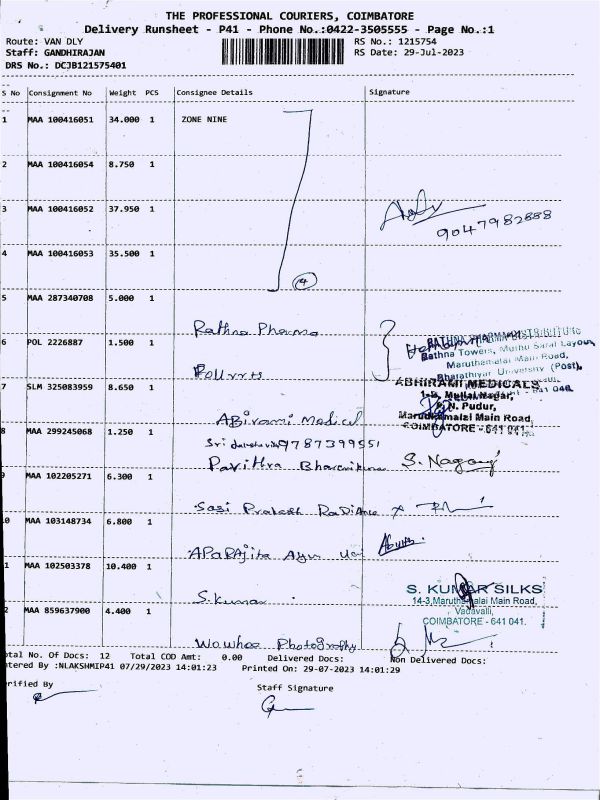 THE PROFESSIONAL COURIERS, COIMBATORE
Delivery Runsheet - P41 - Phone No.:0422-3505555 - Page No.:1
Route: VAN DLY RS No.: 1215754
Staff: GANDHIRAJAN RS Date: 29-Jul-2023
DRS No.: DCJB121575401
S No Consignment No Weight PCS Consignee Details Signature
1 MAA 100416051 34.000 1 ZONE NINE
2 MAA 100416054 8.750 1
3 MAA 100416052 37.950 1
9047982888
4 MAA 100416053 35.500 1
4
5 MAA 287340708 5.000 1
Rathna Pharma
RATHNA PHARMA DISTRIBUTING
6 POL 2226887 1.500 1
Rathna Towers, Muthu Saral Layout,
Maruthamalai Main Road,
Bharathiyar University (Post),
7 SLM 325083959 8.650 1
ABHIRAMI MEDICALS
1-B, Mullai Nagar,
P.N. Pudur,
Marudhamalai Main Road,
COIMBATORE - 641 041.
ABirami Medical
8 MAA 299245068 1.250 1
9787399551
Pavithra S. Nagaraj
9 MAA 102205271 6.300 1
Sasi Prakash Radiance
0 MAA 103148734 6.800 1
APARAjita Ayur
1 MAA 102503378 10.400 1
S. KUMAR SILKS
14-3, Maruthamalai Main Road,
Vadavalli,
COIMBATORE - 641 041.
S.Kumar
2 MAA 859637900 4.400 1
Wowhoo Photography
otal No. Of Docs: 12 Total COD Amt: 0.00 Delivered Docs: Non Delivered Docs:
ntered By :NLAKSHMIP41 07/29/2023 14:01:23 Printed On: 29-07-2023 14:01:29
erified By Staff Signature